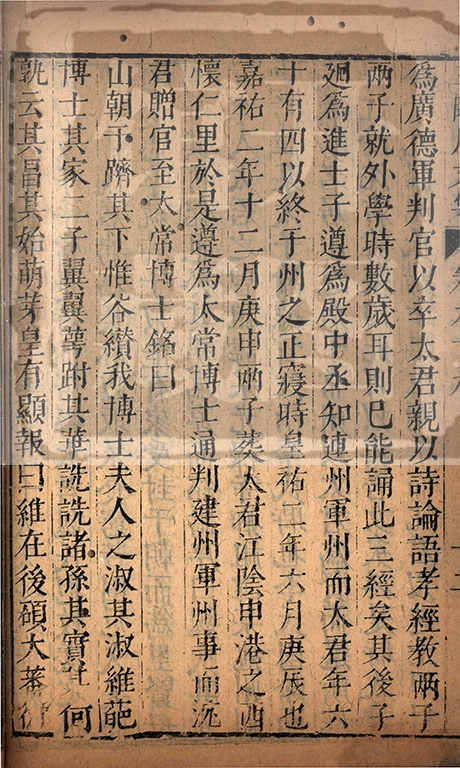 為廣德軍判官以卒太君親以詩論語孝經教兩子
两子就外學時數歲耳則已能誦此三經矣其後子
迴為進士子遵為殿中丞知連州軍州而太君年六
十有四以終于州之正寢時皇祐二年六月庚辰也
嘉祐二年十二月庚申兩子葬太君江陰申港之西
懷仁里於是遵為太常博士通判建州軍州事而沅
君贈官至太常博士銘曰
山朝于躋其下惟谷纘我博士夫人之淑其淑維葩
博士其家二子翼翼萼跗其華詵詵諸孫其實其何
孰云其昌其始萌芽皇有顯報曰維在後碩大蕃衍